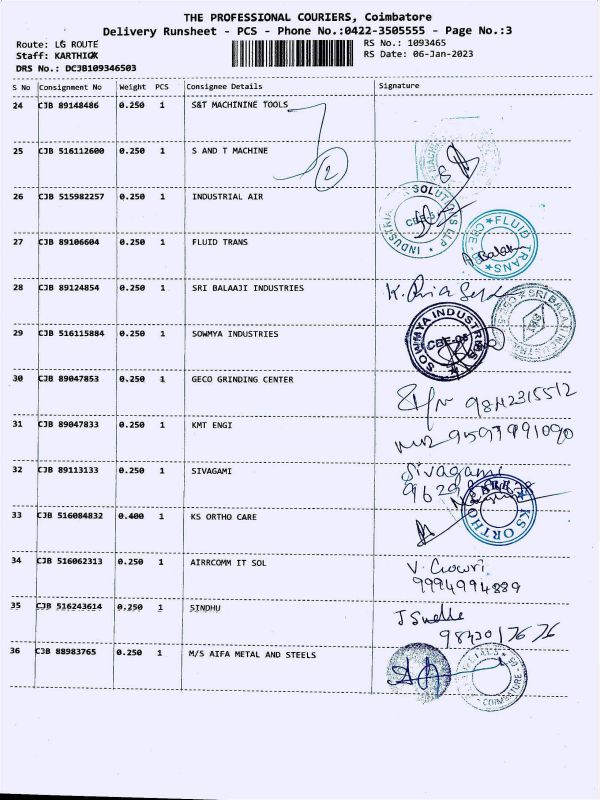 THE PROFESSIONAL COURIERS, Coimbatore
Delivery Runsheet - PCS - Phone No.:0422-3505555 - Page No.:3
Route: LG ROUTE
Staff: KARTHICK
DRS No.: DCJB109346503
RS No.: 1093465
RS Date: 06-Jan-2023
S No Consignment No Weight PCS Consignee Details Signature
24 CJB 89148486 0.250 1 S&T MACHININE TOOLS
2
25 CJB 516112600 0.250 1 S AND T MACHINE
26 CJB 515982257 0.250 1 INDUSTRIAL AIR
INDUSTRIAL SOLUTIONS LLP
27 CJB 89106604 0.250 1 FLUID TRANS
FLUID TRANS CBE
28 CJB 89124854 0.250 1 SRI BALAAJI INDUSTRIES
SRI BALAJI INDUSTRIES
29 CJB 516115884 0.250 1 SOWMYA INDUSTRIES
SOWMYA INDUSTRIES
30 CJB 89047853 0.250 1 GECO GRINDING CENTER
9842315512
31 CJB 89047833 0.250 1 KMT ENGI
32 CJB 89113133 0.250 1 SIVAGAMI
Sivagami
33 CJB 516084832 0.400 1 KS ORTHO CARE
KS ORTHO CARE
34 CJB 516062313 0.250 1 AIRRCOMM IT SOL
V. Gowri
9994994839
35 CJB 516243614 0.250 1 SINDHU
36 CJB 88983765 0.250 1 M/S AIFA METAL AND STEELS
COIMBATORE